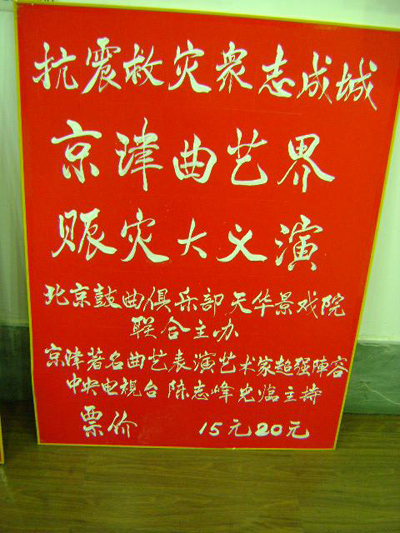 抗震救灾衆志成城
京津曲艺界
赈灾大义演
北京鼓曲俱乐部 天华景戏院
联合主办
京津著名曲艺表演艺术家超强陣容
中央电视台 陈志峰光临主持
票价 15元20元